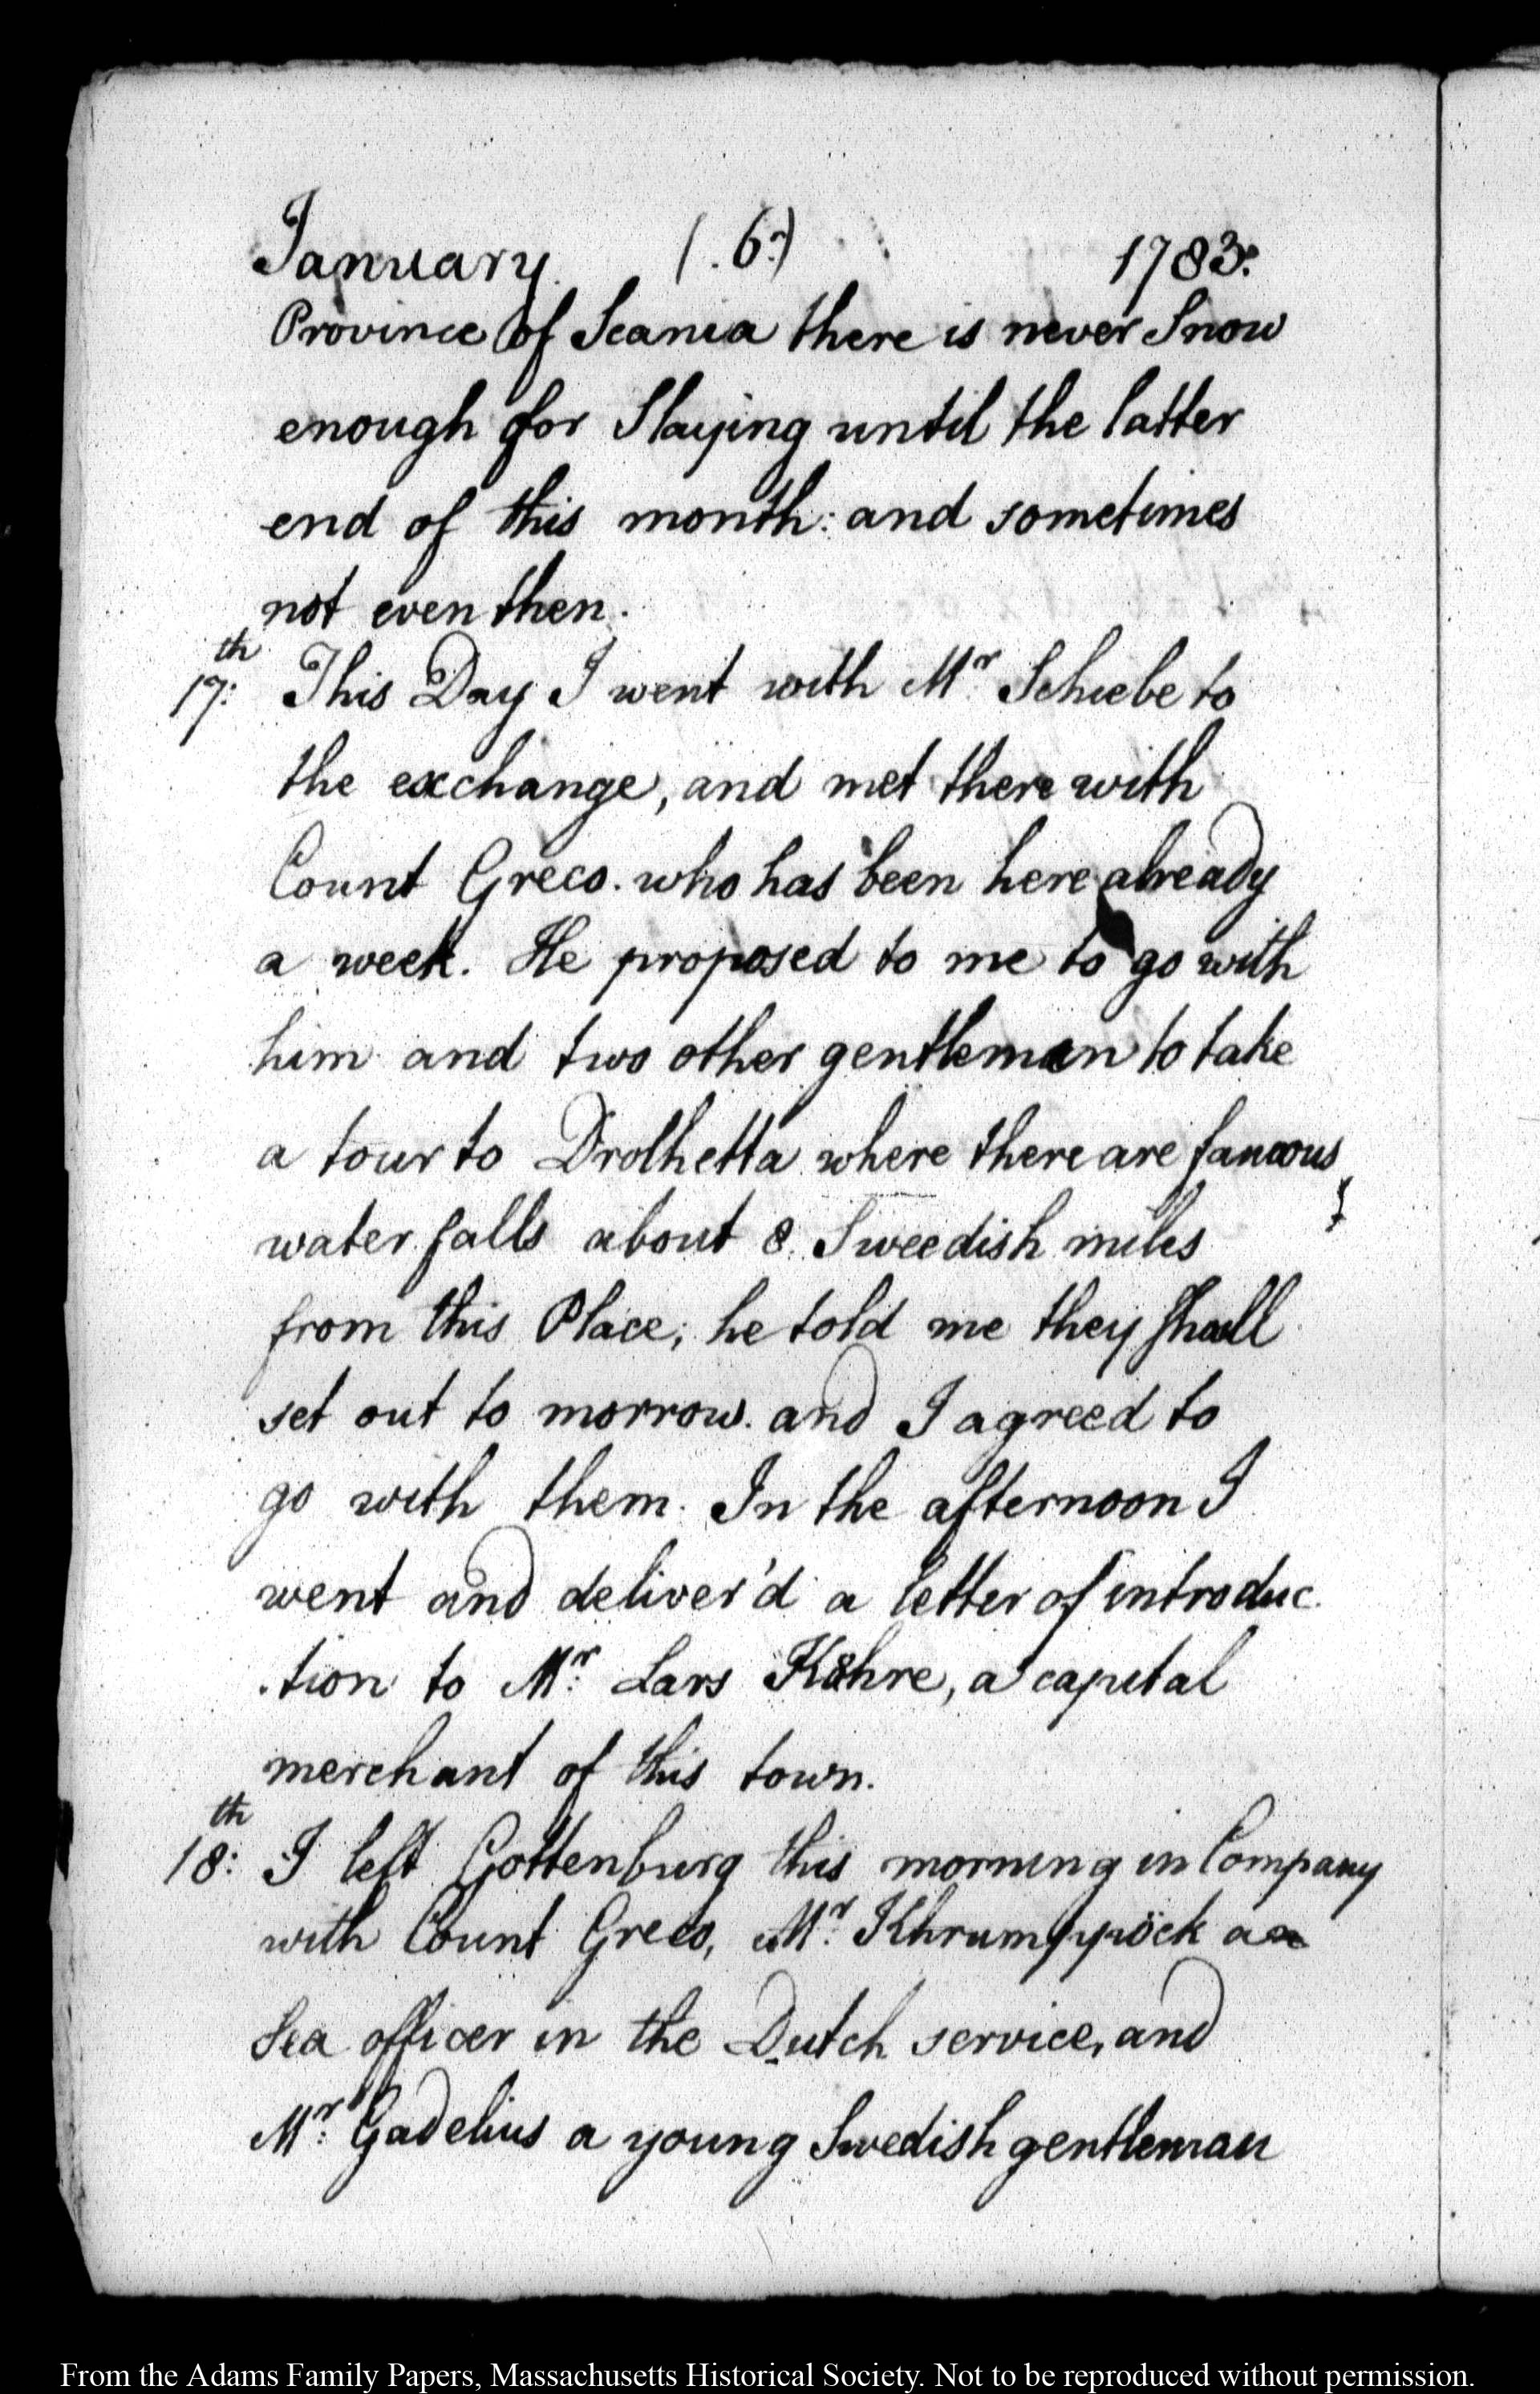 January. (.6.) 1783.
Province of Scania there is never Snow
enough for Slaying until the latter
end of this month: and sometimes
not even then.
17:th This Day I went with Mr. Schiebe to
the exchange, and met there with
Count Greco. who has been here already
a week. He proposed to me to go with
him and two other gentlemen to take
a tour to Drolhetta where there are famous
water falls about 8. Sweedish miles
from this Place; he told me they shall
set out to morrow. and I agreed to
go with them. In the afternoon I
went and deliver'd a letter of introduc
.tion to Mr. Lars Kåhre, a capital
merchant of this town.
18:th I left Gottenburg this morning in Company
with Count Greco, Mr. Khrumppöck a
Sea officer in the Dutch service, and
Mr. Gadelius a young Swedish gentleman
From the Adams Family Papers, Massachusetts Historical Society. Not to be reproduced without permission.